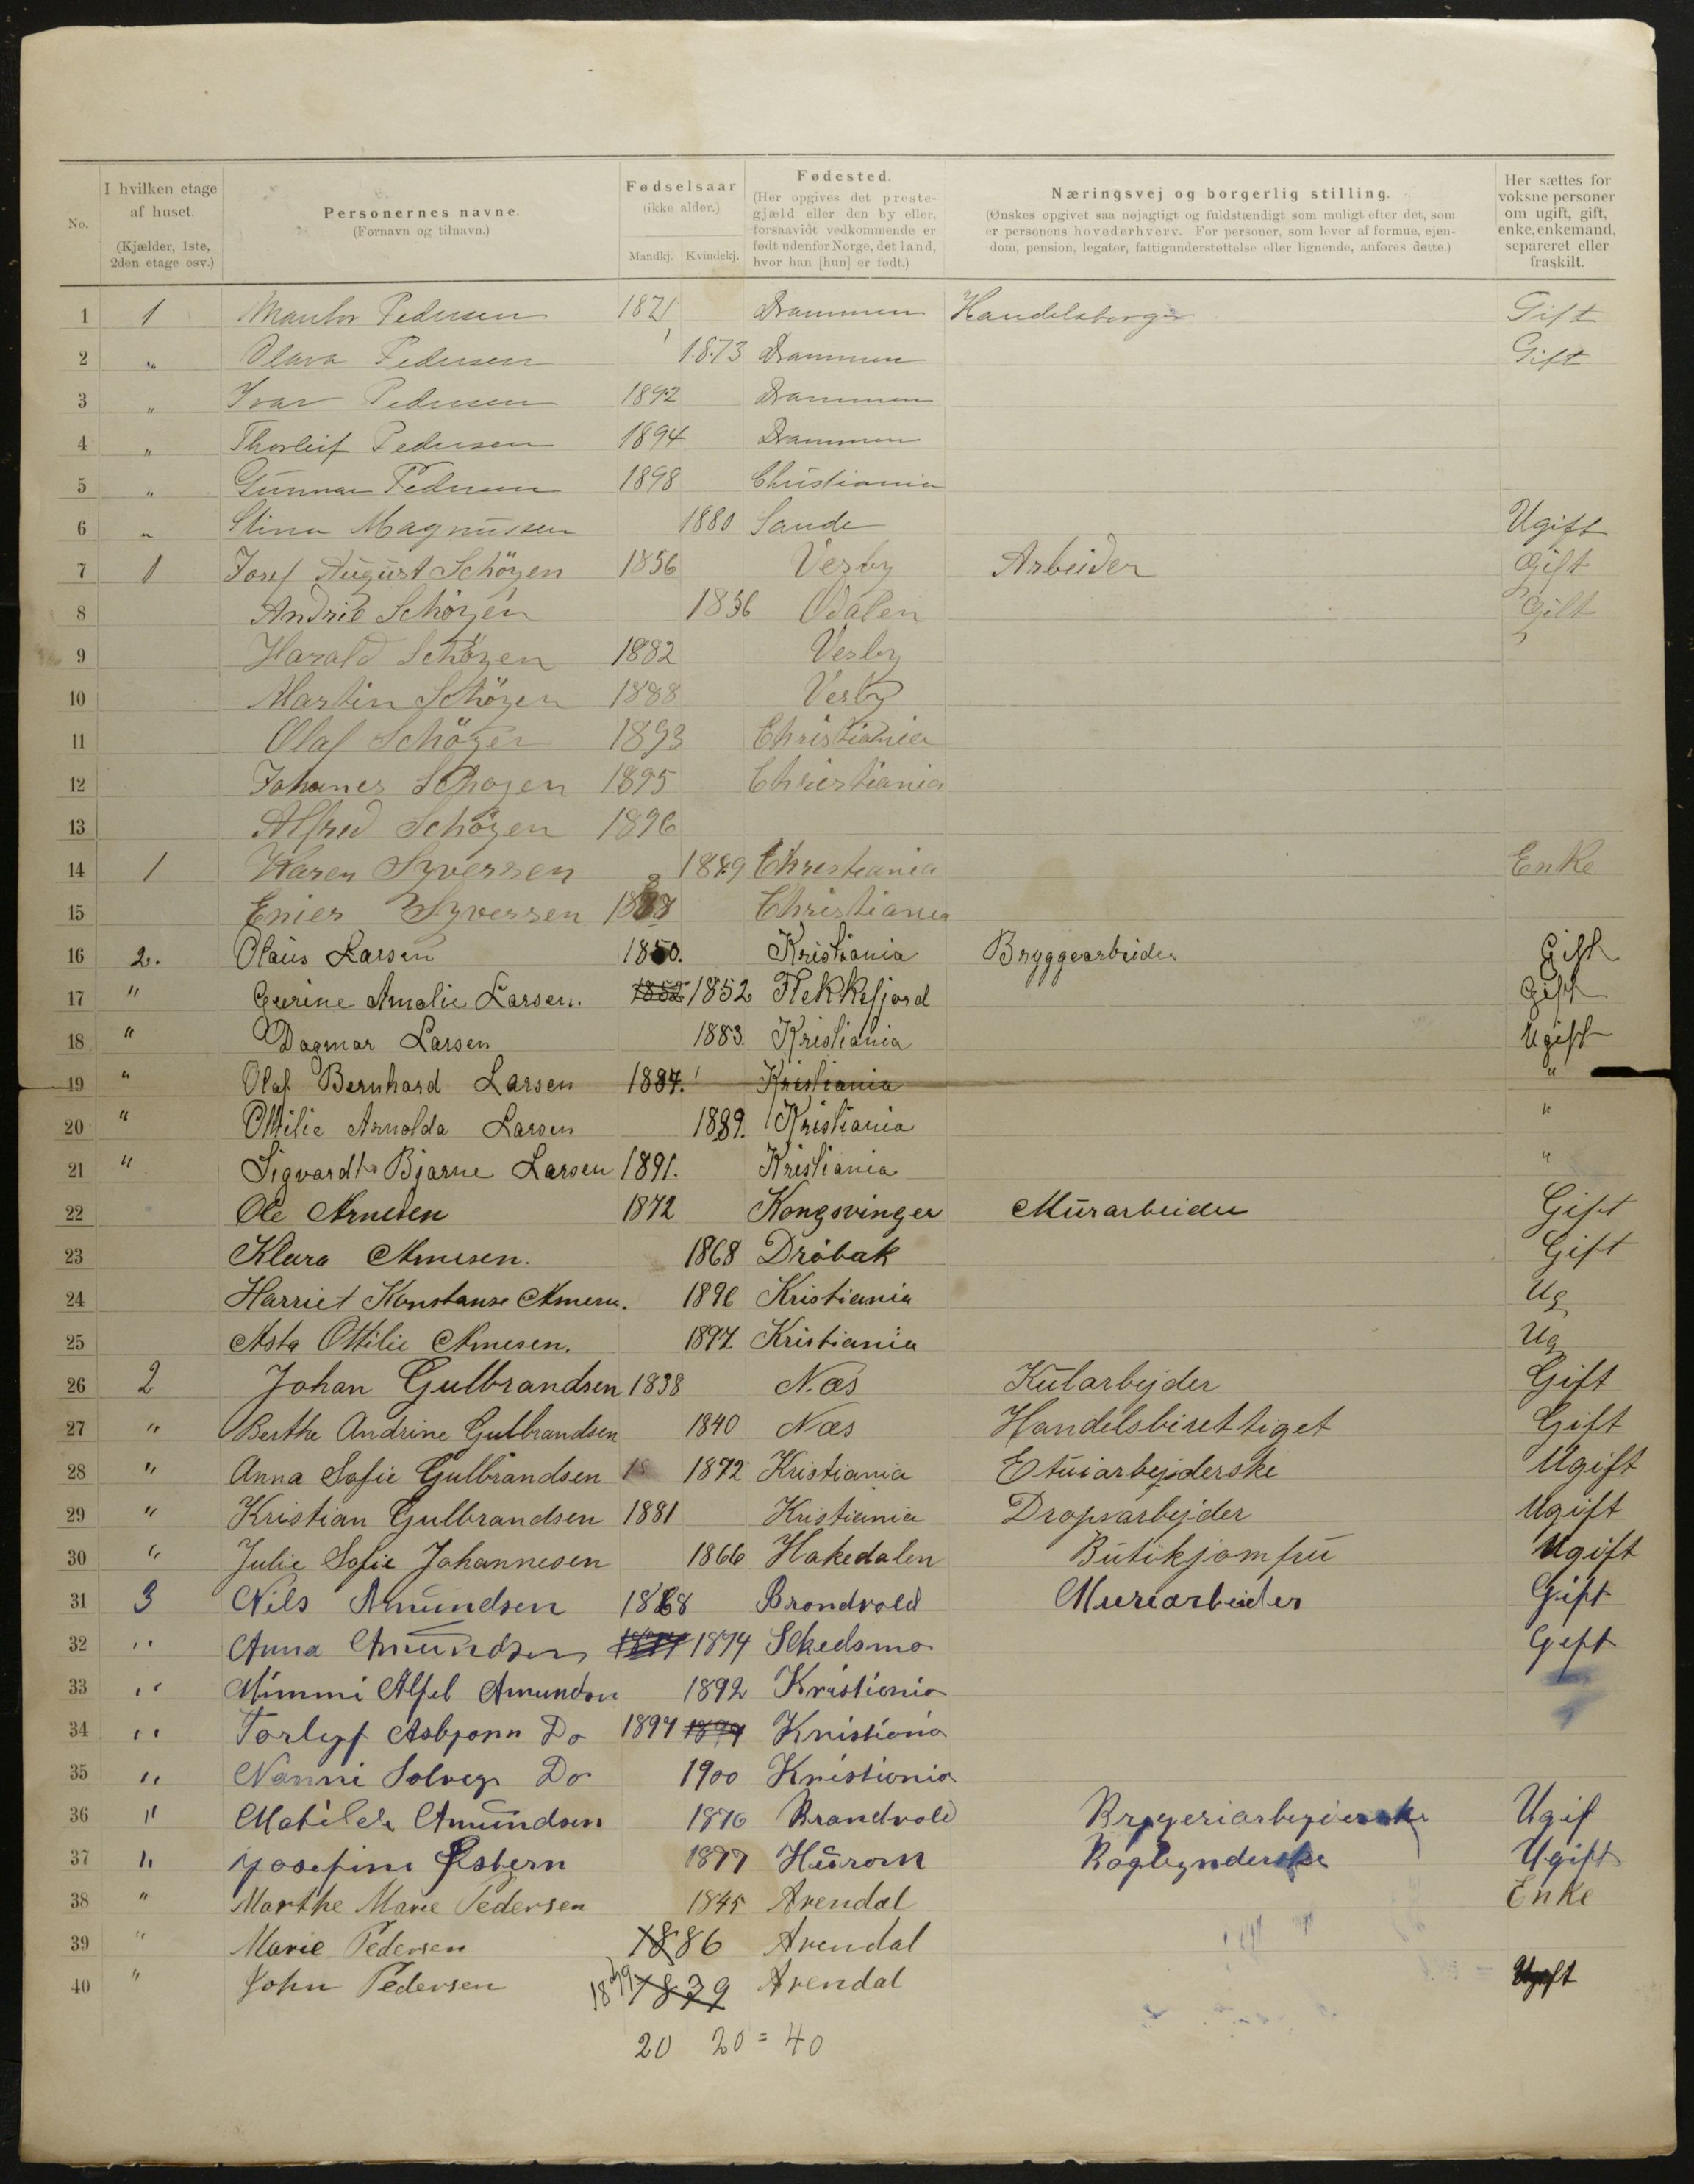 No.
I hvilken etage af huset. (Kjælder, 1ste, 2den etage osv.)
Personernes navne. (Fornavn og tilnavn.)
Fødselsaar (ikke alder.) Mandkj. Kvindekj.
Fødested. (Her opgives det prestegjæld eller den by eller, forsaavidt vedkommende er født udenfor Norge, det land, hvor han [hun] er født.)
Næringsvej og borgerlig stilling. (Ønskes opgivet saa nøjagtigt og fuldstændigt som muligt efter det, som er personens hovederhverv. For personer, som lever af formue, ejendom, pension, legater, fattigunderstøttelse eller lignende, anføres dette.)
Her sættes for voksne personer om ugift, gift, enke, enkemand, separeret eller fraskilt.
1 1 Pedersen 1871 Drammen Handelsborger Gift
2 " Olava Pedersen 1873 Drammen Gift
3 " Ivar Pedersen 1892 Drammen
4 " Thorleif Pedersen 1894 Drammen
5 " Gunnar Pedersen 1898 Christiania
6 " Stina Magnussen 1880 Sande Ugift
7 1 Josef August Schöyen 1856 Vesby Arbeider Gift
8 Andrie Schöyen 1836 Odalen Gift
9 Harald Schöyen 1882 Vesby
10 Martin Schöyen 1888 Vesby
11 Olaf Schöyen 1893 Christiania
12 Johanes Schøyen 1895 Christiania
13 Alfred Schöyen 1896
14 1 Karen Syversen 1849 Christiania Enke
15 Enier Syversen 1888 Christiania
16 2. Olaus Larsen 1850. Kristiania Bryggearbeider Gift
17 " Gurine Amalie Larsen. 1852 1852 Flekkefjord Gift
18 " Dagmar Larsen 1883. Kristiania Ugift
19 " Olaf Bernhard Larsen 1887. Kristiania "
20 " Ottilie Arnolda Larsen 1889. Kristiania "
21 " Sigvardt Bjarne Larsen 1891. Kristiania "
22 Ole Arnesen 1872 Kongsvinger Murarbeider Gift
23 Klara Arnesen. 1868 Dröbak Gift
24 Harriet Konstanse Arnesen. 1896 Kristiania Ug
25 Asta Ottilie Arnesen. 1897. Kristiania Ug
26 2 Johan Gulbrandsen 1838 Næs Kularbejder Gift
27 " Berthe Andrine Gulbrandsen 1840 Næs Handelsbirettiget Gift
28 " Anna Sofie Gulbrandsen 18 1872 Kristiania Etuiarbejderske Ugift
29 " Kristian Gulbrandsen 1881 Kristiania Dropsarbejder Ugift
30 " Julie Sofie Johannesen 1866 Hakedalen Butikjomfru Ugift
31 3 Nils Amundsen 1868 Brandvold Murarbeider Gift
32 " Anna Amundsen 1874 Skedsmo Gift
33 " Mimmi Alfel Amundsen 1892 Kristiania
34 " Torleyf Asbjørn Do 1894 1894 Kristiania
35 " Nanni Solveg Do 1900 Kristiania
36 " Matilde Amundsen 1876 Brandvold Brygeriarbejderske Ugif
37 " Josefine Østern 1877 Hurom Ugift
38 " Marthe Marie Pedersen 1845 Arendal Enke
39 " Marie Pedersen 1886 Arendal
40 " John Pedersen 1879 1879 Arendal Ugift
20 20 = 40